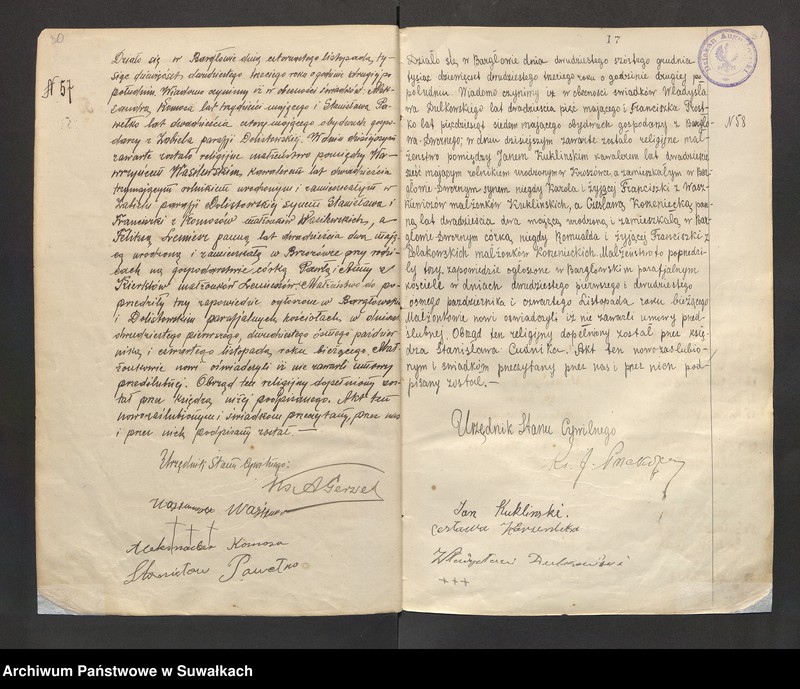 30
N 57
Działo się w Bargłowie dnia czternastego listopada, ty-
siąc dziewięćset dwudziestego trzeciego roku o godzinie drugiej po
południu. Wiadomo czynimy iż w obecności świadków Alek-
sandra Komosa lat trzydzieści mającego i Stanisława Pa-
wełko lat dwadzieścia cztery mającego obydwuch gospo-
darzy z Zabiela parafji Dolistowskiej. W dniu dzisiejszym
zawarte zostało religijne małżeństwo pomiędzy Wa-
wrzyńcem kawalerem lat dwadzieścia
trzy mającym rolnikiem urodzonym i zamieszkałym w
Zabielu parafji Dolistowskiej synem Stanisława i
Franciszki z Komosów małżonków a
Feliksą panną lat dwadzieścia dwa mają-
cą urodzoną i zamieszkałą w Brzozówce przy rodzi-
cach na gospodarstwie córką Pawła i Anny z
małżonków Małżeństwo to po-
przedziły trzy zapowiedzie ogłoszone w Bargłowskim
i Dolistowskim parafjalnych kościołach w dniach
dwudziestego pierwszego, dwudziestego ósmego paździer-
nika, i czwartego listopada, roku bieżącego. Mał-
żonkowie nowi oświadczyli iż nie zawarli umowy
przedślubnej. Obrząd ten religijny dopełniony zos-
tał przez księdza niżej podpisanego. Akt ten
nowozaślubionym i świadkom przeczytany, przez nas
i przez nich podpisany został.—
Urzędnik Stanu Cywilnego:
Wawrzyniec
+ + +
Aleksander Komosa
Stanisław Pawełko
17
31
N 58
Działo się w Bargłowie dnia dwudziestego szóstego grudnia
tysiąc dziewięćset dwudziestego trzeciego roku o godzinie drugiej po
południu. Wiadomo czynimy iż w obecności świadków Władysła-
wa Dulkowskiego lat dwadzieścia pięć mającego i Franciszka Prost-
ko lat pięćdziesiąt siedem mającego obydwuch gospodarzy z Bargło-
wa-Dwornego; w dniu dzisiejszym zawarte zostało religijne mał-
żeństwo pomiędzy Janem Kuklińskim kawalerem lat dwadzieścia
sześć mającym rolnikiem urodzonym w Kroszówce, a zamieszkałym w Bar-
głowie Dwornym synem niegdy Karola i żyjącej Franciszki z Wasz-
kiewiczów małżonków Kuklińskich, a Czesławą Korzeniecką pan-
ną lat dwadzieścia, dwa mającą urodzoną i zamieszkałą w Bar-
głowie Dwornym córką niegdy Romualda i żyjącej Franciszki z
małżonków Korzenieckich. Małżeństwo to poprzedzi-
ły trzy zapowiedzie ogłoszone w Bargłowskim parafjalnym
kościele w dniach dwudziestego pierwszego i dwudziestego
ósmego października i czwartego Listopada roku bieżącego
Małżonkowie nowi oświadczyli iż nie zawarli umowy przed-
ślubnej. Obrząd ten religijny dopełniony został przez księ-
dza Stanisława Cudnika.— Akt ten nowozaślubio-
nym i świadkom przeczytany przez nas i przez nich pod-
pisany został.—
Urzędnik Stanu Cywilnego
Jan Kukliński.
Władysław Dulkowski
+++
Archiwum Państwowe w Suwałkach